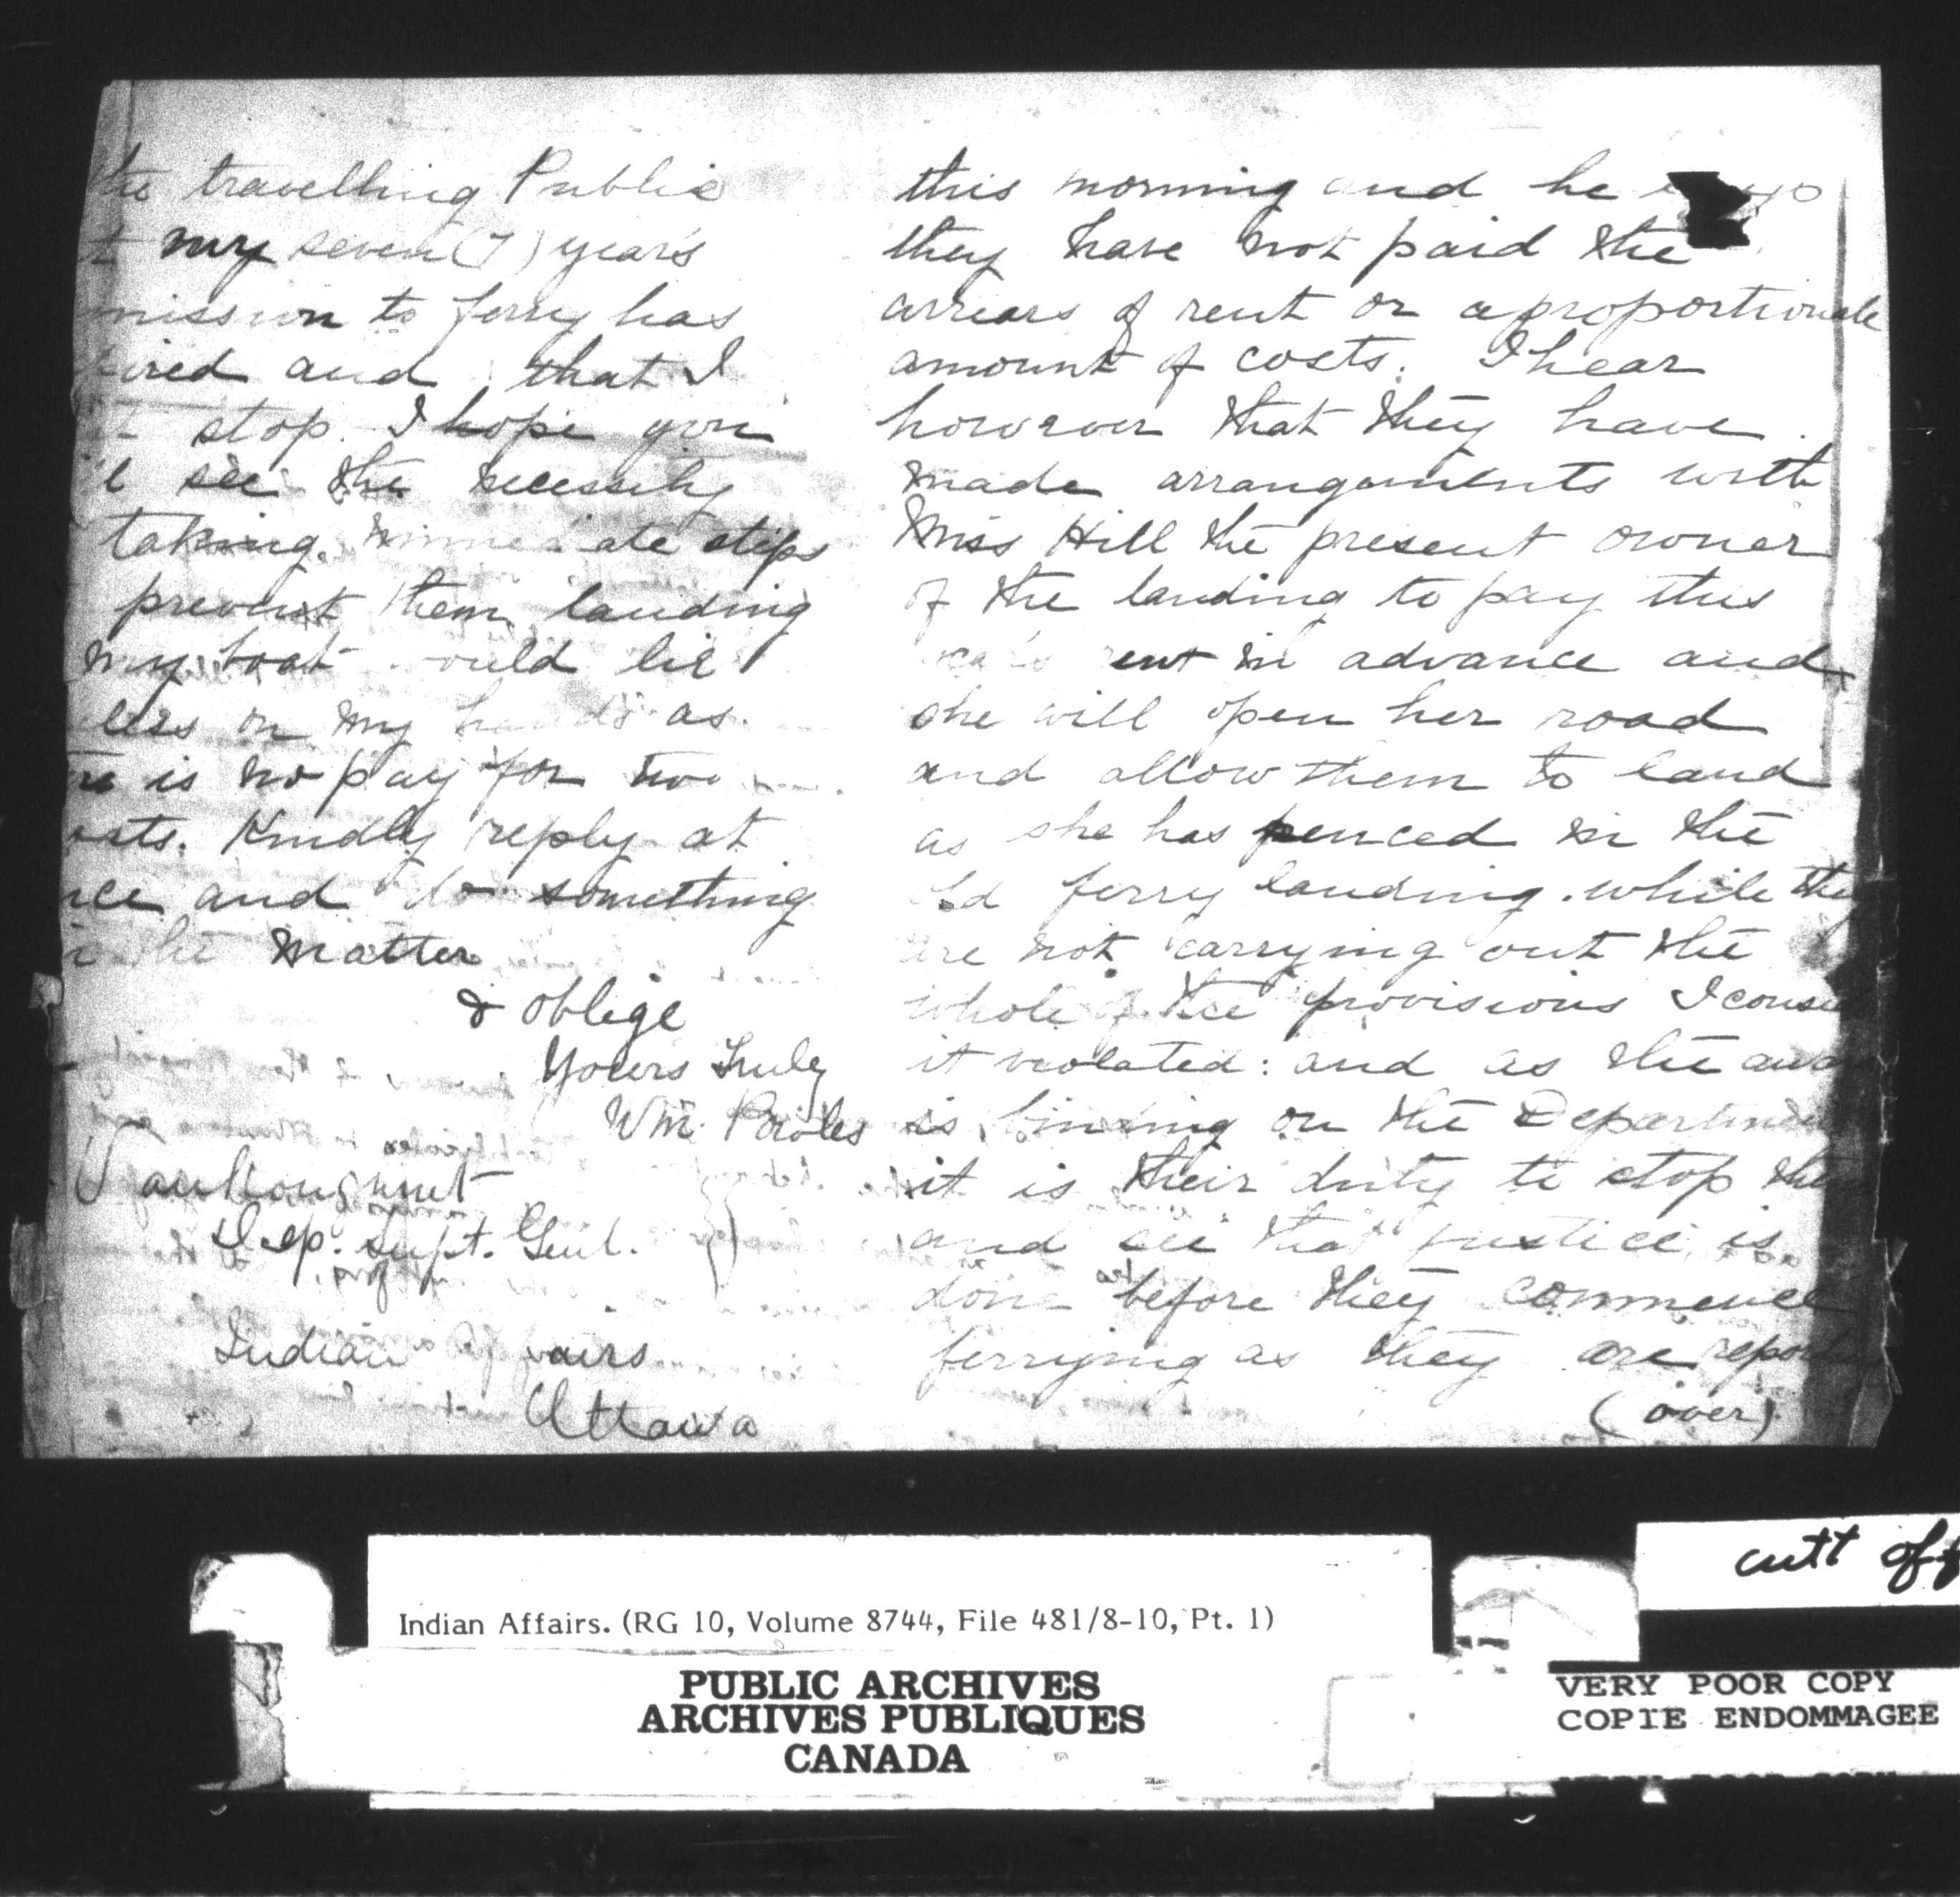 the travelling Public
t my seven (7) years
mission to ferry has
ired and that I
t stop. I hope you
'l see the necessity
taking immediate steps
prevent them landing
my boat would lie
less on my hands as
re is no pay for two
oats. Kindly reply at
nce and do something
the matter
& oblige
Yours Truly
Wm. Powles
Vankoughnet
Dep. Supt. Genl.
Indian airs
Ottawa
this morning and he
they have not paid the
arrears of rent or a proportionate
amount of costs. I hear
however that they have
made arrangements with
Miss Hill the present owner
of the landing to pay this
rent in advance and
she will open her road
and allow them to land
as she has fenced in the
old ferry landing. while they
are not carrying out the
whole of the provisions I cons
it violated: and as the awa
is binding on the Departm
it is their duty to stop them
and see that justice is
done before they commence
ferrying as they are report
(over)
Indian Affairs. (RG 10, Volume 8744, File 481/8-10, Pt. 1)
PUBLIC ARCHIVES
ARCHIVES PUBLIQUES
CANADA
cutt off
VERY POOR COPY
COPIE ENDOMMAGEE